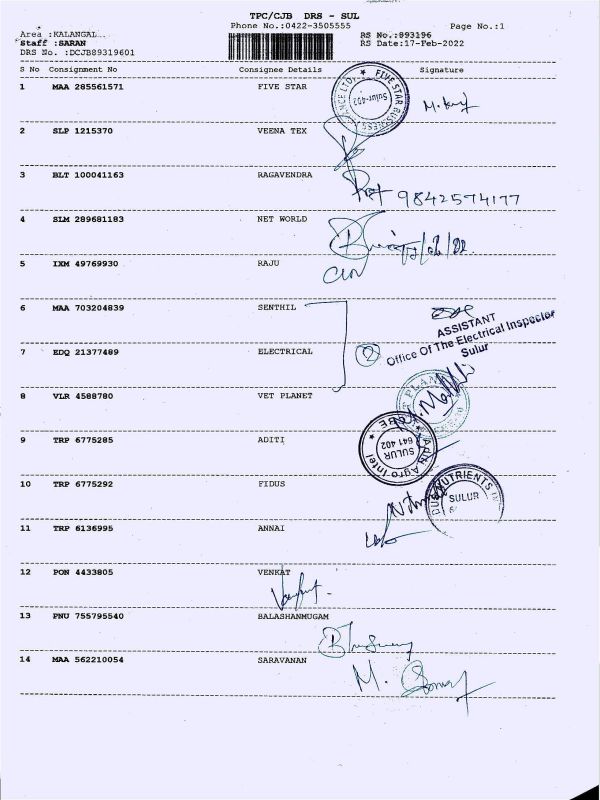 TPC/CJB DRS - SUL
Phone No.:0422-3505555 Page No.:1
Area :KALANGAL RS No.:893196
Staff :SARAN RS Date:17-Feb-2022
DRS No. :DCJB89319601
S No Consignment No Consignee Details Signature
1 MAA 285561571 FIVE STAR
FIVE STAR BUSINESS
Sulur-402
2 SLP 1215370 VEENA TEX
3 BLT 100041163 RAGAVENDRA
9842574177
4 SLM 289681183 NET WORLD
5 IXM 49769930 RAJU
6 MAA 703204839 SENTHIL
ASSISTANT
Office Of The Electrical Inspector
Sulur
7 EDQ 21377489 ELECTRICAL
2
8 VLR 4588780 VET PLANET
9 TRP 6775285 ADITI
Aditi Agro Intel
SULUR
641 402
CBE
10 TRP 6775292 FIDUS
NUTRIENTS
SULUR
11 TRP 6136995 ANNAI
12 PON 4433805 VENKAT
13 PNU 755795540 BALASHANMUGAM
14 MAA 562210054 SARAVANAN
M.